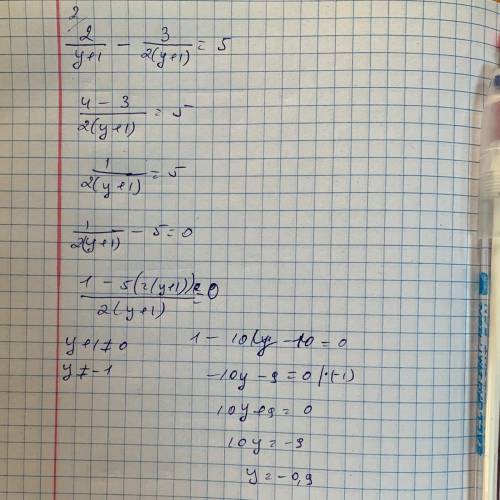 2
2/(y+1) - 3/(2(y+1)) = 5
(4 - 3)/(2(y+1)) = 5
1/(2(y+1)) = 5
1/(2(y+1)) - 5 = 0
(1 - 5(2(y+1)))/(2(y+1)) = 0
y+1 ≠ 0
y ≠ -1
1 - 10y - 10 = 0
-10y - 9 = 0 | ·(-1)
10y + 9 = 0
10y = -9
y = -0,9